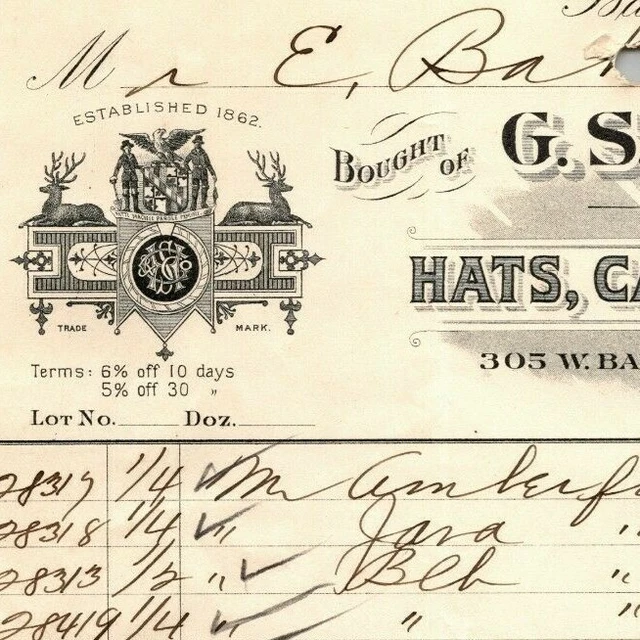 Mr E. Ba
ESTABLISHED 1862.
BOUGHT OF G. S
HATS, CA
TRADE MARK.
305 W. BA
Terms: 6% off 10 days
5% off 30 "
LOT NO. DOZ.
28317 1/4 ✓ M
28318 1/4 ✓ " Java "
28313 1/2 " ✓ Blk "
28419 1/4 ✓ " " "